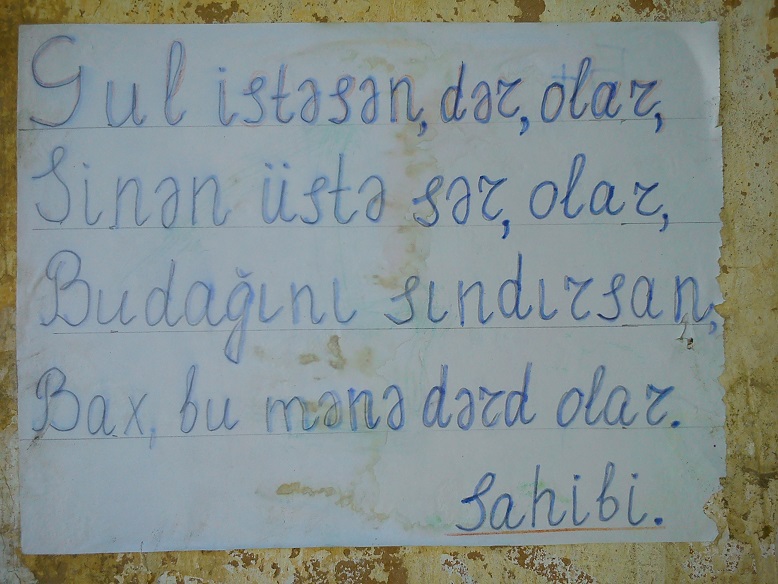 Gul istəsən, dər, olar,
Sinən üstə sər, olar,
Budağını sındırsan,
Bax, bu mənə dərd olar.
Sahibi.